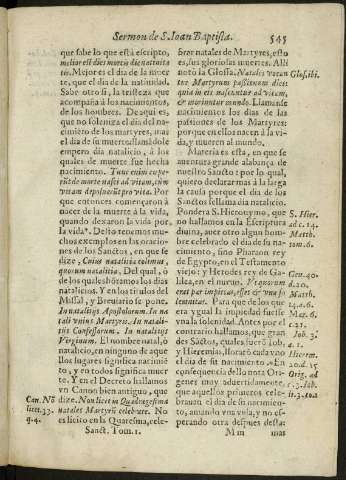 Sermon de S. Ioan Baptista.
545
que sabe lo que està escripto,
melior est dies mortis die natiuita
tis. Mejor es el dia de la muer
te, que el dia de la natiuidad.
Sabe otro si, la tristeza que
acompaña à los nacimientos,
de los hombres. De aqui es,
que no solenniza el dia del naci-
miẽto de los martyres, mas
el dia de su muerte: llamãdole
empero dia natalicio, à los
quales de muerte fue hecha
nacimiento. Tunc enim corpo-
rũ de morte nasci ad vitam, cũm
vitam deposuerũt pro vita. Por
que entonces començaron à
nacer de la muerte à la vida,
quando dexaron la vida por
la vida. Desto tenemos mu-
chos exemplos en las oracio-
nes de los Sanctos, en que se
dize, Cuius natalitia colimus,
quorum natalitia. Del qual, ò
de los quales hõramos los dias
natalicios. Y en los titulos del
Missal, y Breuiario se pone.
In natalitijs Apostolorum. In na
tali vnius Martyris. In natali-
tijs Confessorum. In natalitijs
Virginum. El nombre natal, ò
natalicio, en ninguno de aque
llos lugares significa nacimiẽ
to, y en todos significa muer
te. Y en el Decreto hallamos
vn Canon bien antiguo, que
dize. Non licet in Quadragesima
natales Martyrũ celebrare. No
es licito en la Quaresma, cele-
Can. Nõ
licet. 33.
q. 4.
Sanct. Tom. 1.
brar natales de Martyres, esto
es, sus gloriosas muertes. Alli
notò la Glossa. Natales vocan
tur Martyrum passionum dies:
quia in eis nascuntur ad vitam,
& moriuntur mundo. Llamãse
nacimientos los dias de las
passiones de los Martyres:
porque en ellos nacen à la vi-
da, y mueren al mundo.
Materia es esta, en que se
auentura grande alabança de
nuestro Sancto: y por lo qual,
quiero declararmas à la larga
la causa porque el dia de los
Sanctos se llama dia natalicio.
Pondera S. Hieronymo, que
no hallamos en la Escriptura
diuina, auer otro algun hom
bre celebrado el dia de su na-
cimiento, sino Pharaon rey
de Egypto, en el Testamento
viejo: y Herodes rey de Ga-
lilea, en el nueuo. Vt quorum
erat par impietas, esset & vna so
lemnitas. Para que de los que
era ygual la impiedad fuesse
vna la solenidad. Antes por el
contrario hallamos, que gran
des Sãctos, quales fuerõ Iob,
y Hieremias, llorarõ cada vno
el dia de su nacimiento. En
consequencia desto nota Ori-
genes muy aduertidamente,
que aquellos primeros cele-
brauan el dia de su nacimien-
to, amando vna vida, y no es-
perando otra despues desta:
Glos. ibi.
S. Hier.
ad c. 14.
Matth.
tom. 6.
Gen. 40.
n. 20.
Matth.
14. n. 6.
Mar. 6.
n. 21.
Iob. 3.
n. 1.
Hierem.
20. n. 15
Orig. ad
c. 3. Iob.
M m
mas